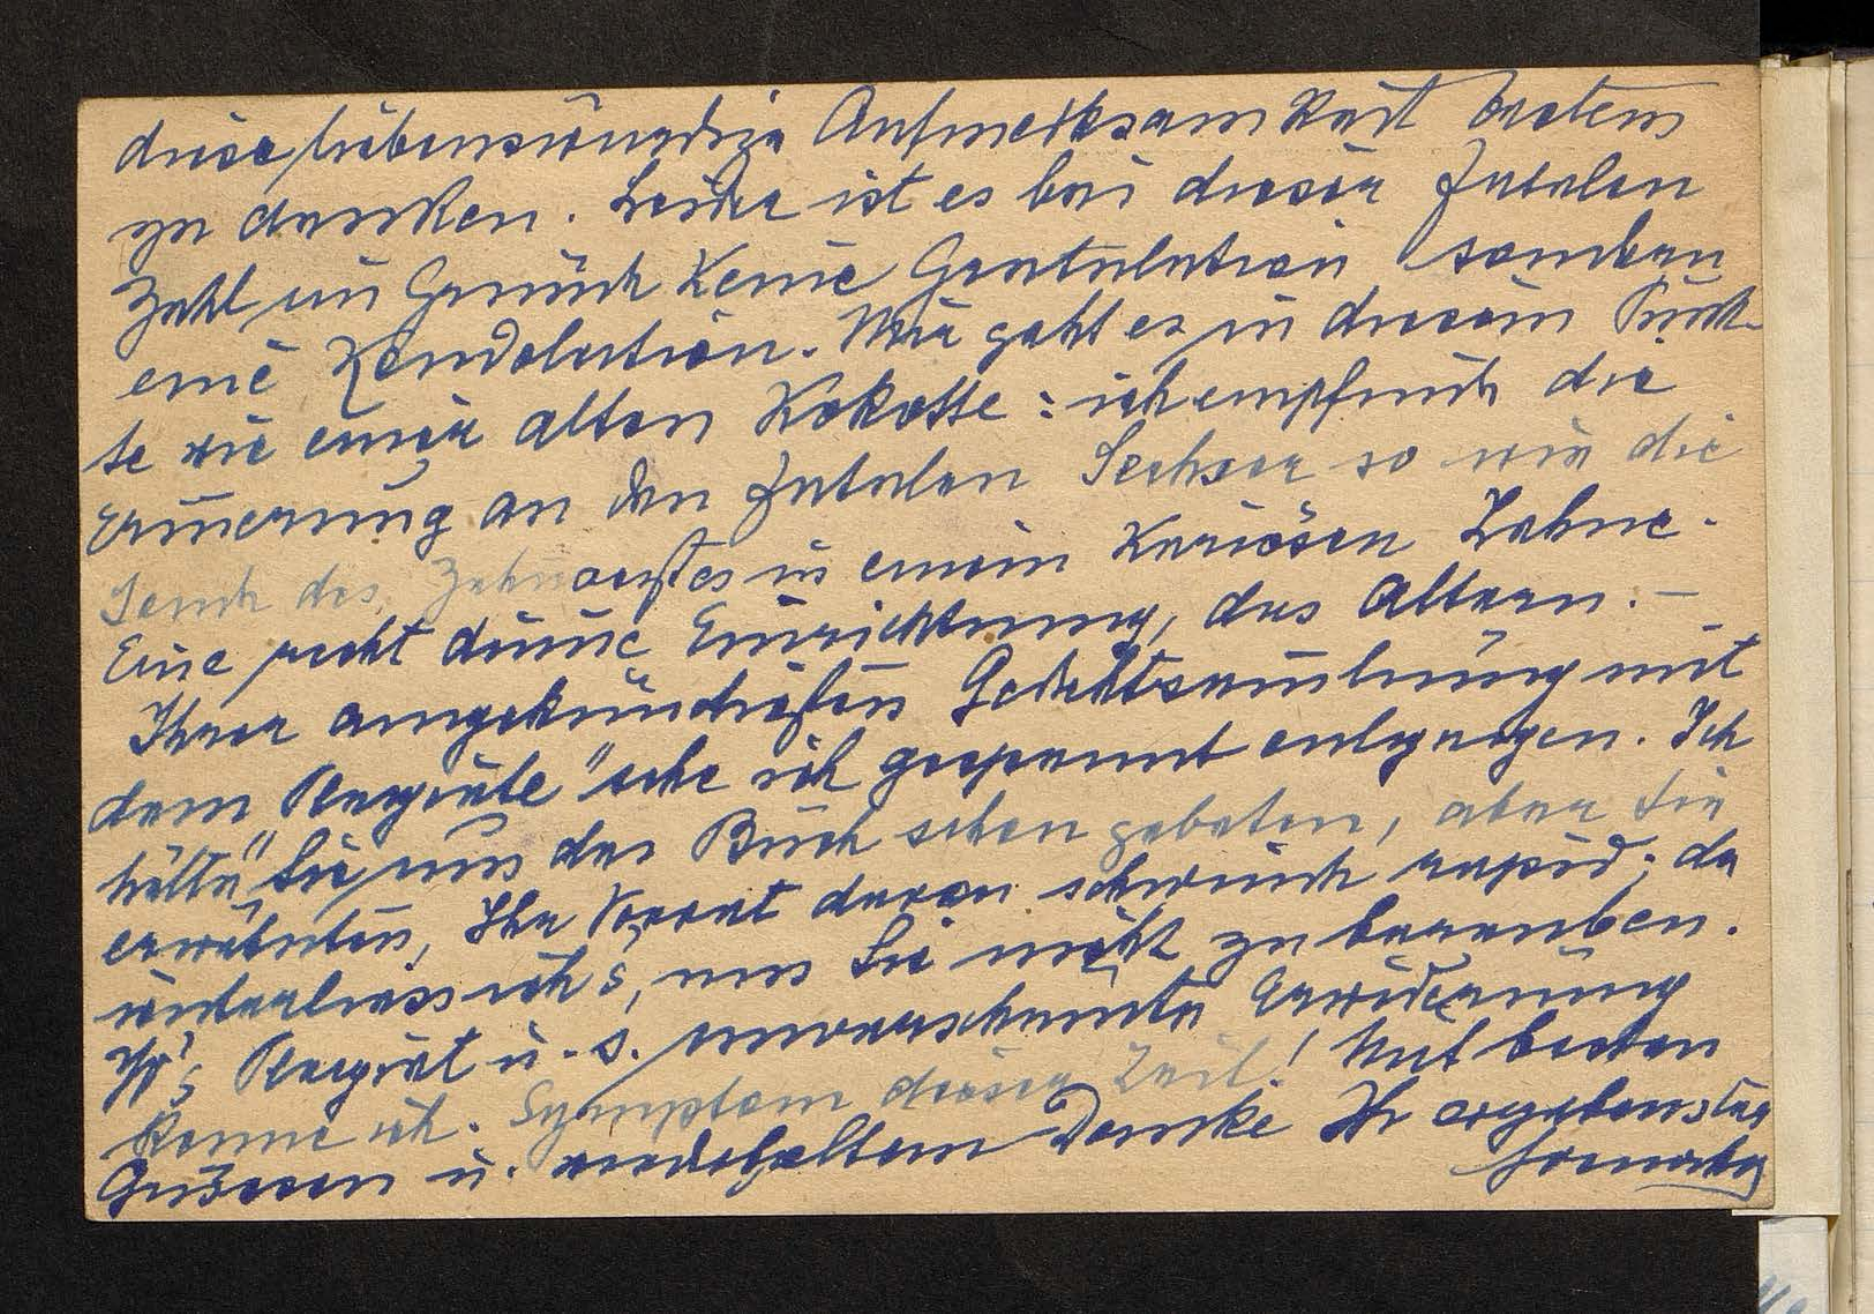 diese liebenswürdige Aufmerksamkeit bestens
zu danken. Leider ist es bei dieser fatalen
Zahl im Grunde keine Gratulation sondern
eine Kondolation. Mir geht es in diesem Punk-
te wie einer alten Kokotte: ich empfinde die
Erinnerung an den fatalen Sechser so wie die
Sonde des Zahnarztes in einem kariösen Zahne.
Eine recht dumme Einrichtung, das Altern. —
Ihrer angekündigten Gedichtsammlung mit
dem Plagiate sehe ich gespannt entgegen. Ich
hätte Sie um das Buch schon gebeten, aber Sie
erwähnten, Ihr Vorrat daran schwinde rapid; da
unterliess ich's, um Sie nicht zu berauben.
Plagiat u. s. unverschämte Erwiderung
kenne ich. Symptom dieser Zeit! Mit besten
Grüssen u. wiederholtem Danke Ihr ergebenster